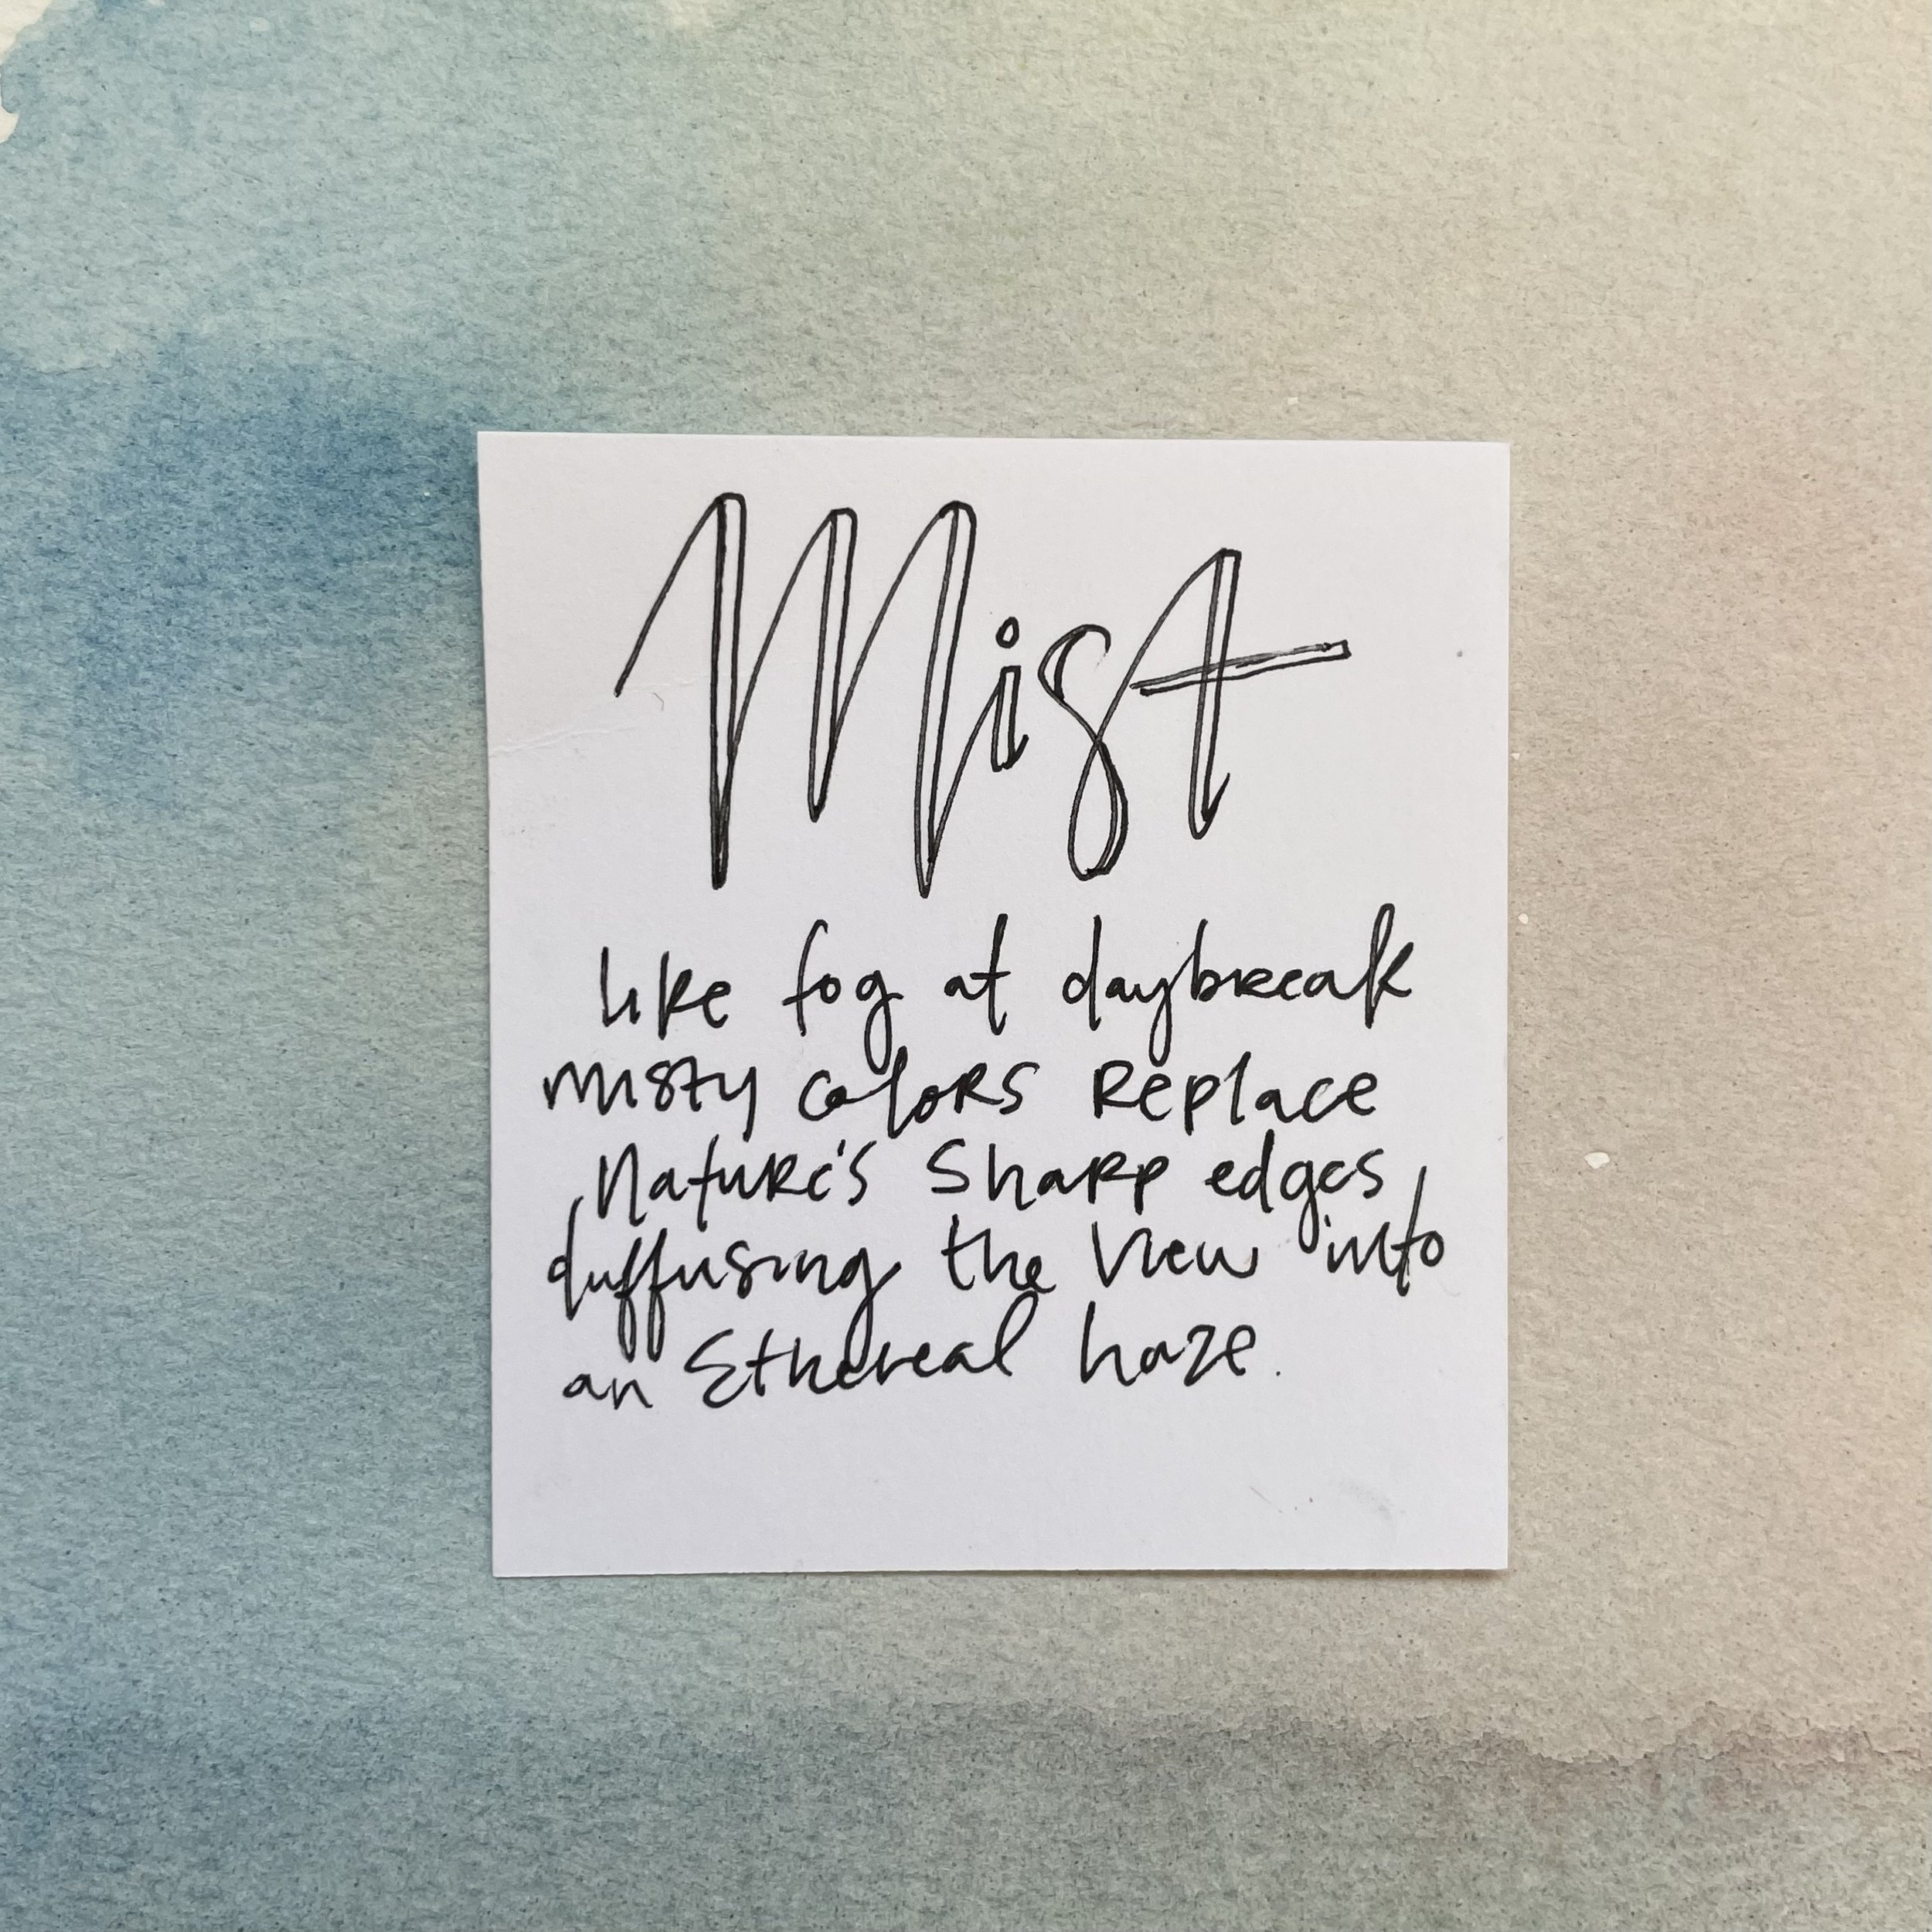 Mist
like fog at daybreak
misty colors replace
Nature's sharp edges
diffusing the view into
an Ethereal haze.